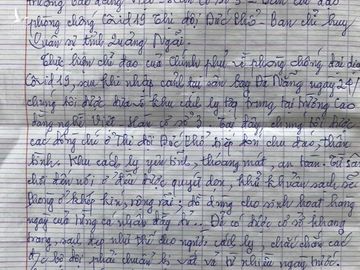 trường cao đẳng Việt - Hàn cơ sở 3 -
phòng chống Covid 19 Thị đội Đức Phổ - ban chỉ huy
Quân sự tỉnh Quảng Ngãi.
Thực hiện chỉ đạo của Chính phủ về phòng chống đại dịch
Covid 19, sau khi nhập cảnh tại sân bay Đà Nẵng ngày 24/
chúng tôi được đưa về khu cách ly tập trung tại trường Cao
đẳng nghề Việt Hàn cơ sở 3. Tại đây, chúng tôi được
các đồng chí ở Thị đội Đức Phổ tiếp đón chu đáo, thân
tình. Khu cách ly yên tĩnh, thoáng mát, an toàn. Từ sân
chơi đến nơi ở đều được quét dọn, khử khuẩn sạch sẽ
phòng ở khép kín, rộng rãi; đồ dùng cho sinh hoạt hàng
ngày của từng cá nhân đầy đủ. Để có được cơ sở khang
trang, sạch đẹp như thế cho người cách ly, chắc chắn các
bộ đội phải chuẩn bị vất vả từ nhiều ngày trước.